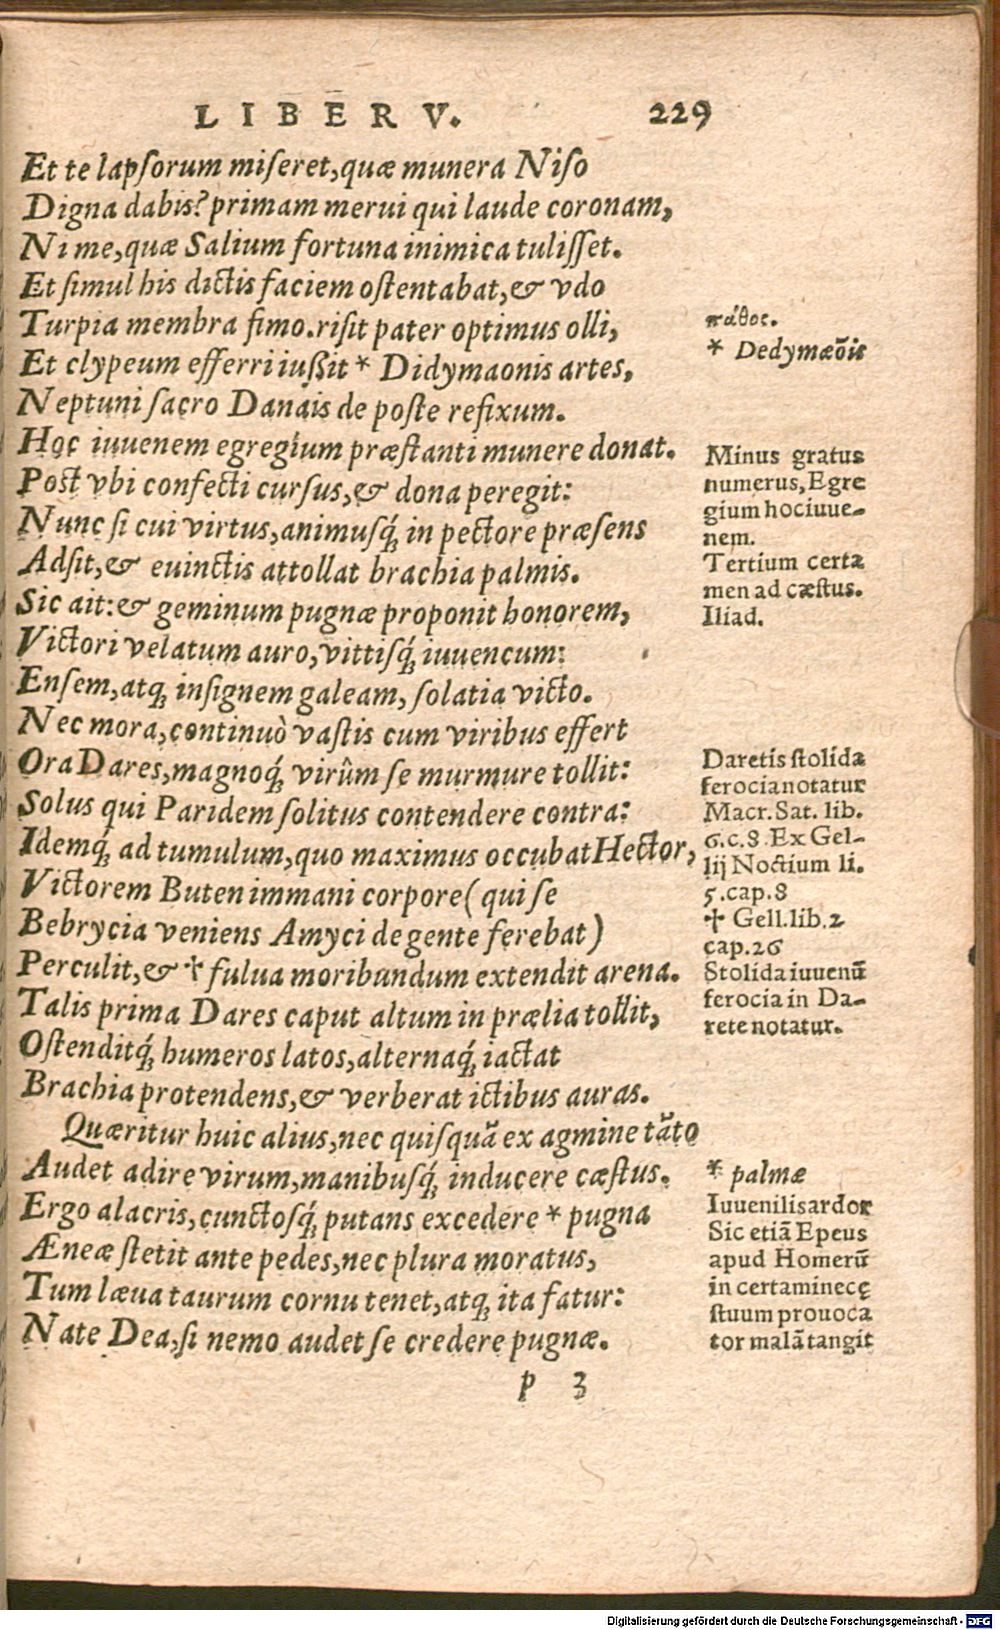 LIBER V. 229
Et te lapſorum miſeret,quæ munera Niſo
Digna dabis? primam merui qui laude coronam,
Ni me,quæ Salium fortuna inimica tuliſſet.
Et ſimul his dictis faciem oſtentabat,& vdo
Turpia membra fimo.riſit pater optimus olli,
Et clypeum efferri iuſſit * Didymaonis artes,
Neptuni ſacro Danais de poſte refixum.
Hoc iuuenem egregium præſtanti munere donat.
Poſt vbi confecti curſus,& dona peregit:
Nunc ſi cui virtus,animuſq́; in pectore præſens
Adſit,& euinctis attollat brachia palmis.
Sic ait:& geminum pugnæ proponit honorem,
Victori velatum auro,vittiſq́; iuuencum:
Enſem,atq; inſignem galeam, ſolatia victo.
Nec mora,continuò vaſtis cum viribus effert
Ora Dares,magnoq́; virûm ſe murmure tollit:
Solus qui Paridem ſolitus contendere contra:
Idemq́; ad tumulum,quo maximus occubat Hector,
Victorem Buten immani corpore( qui ſe
Bebrycia veniens Amyci de gente ferebat)
Perculit,& ✝ fulua moribundum extendit arena.
Talis prima Dares caput altum in prælia tollit,
Oſtenditq́; humeros latos,alternaq́; iactat
Brachia protendens,& verberat ictibus auras.
Quæritur huic alius,nec quiſquã ex agmine tãto
Audet adire virum,manibuſq́; inducere cæſtus.
Ergo alacris,cunctoſq́; putans excedere * pugna
Æneæ ſtetit ante pedes,nec plura moratus,
Tum læua taurum cornu tenet,atq; ita fatur:
Nate Dea,ſi nemo audet ſe credere pugnæ.
p 3
πάθος.
* Dedymæõis
Minus gratus
numerus, Egre
gium hoc iuue-
nem.
Tertium certa
men ad cæſtus.
Iliad.
Daretis ſtolida
ferocia notatur
Macr. Sat. lib.
6.c.8 Ex Gel-
lij Noctium li.
5.cap.8
✝ Gell.lib.2
cap.26
Stolida iuuenũ
ferocia in Da-
rete notatur.
* palmæ
Iuuenilis ardor
Sic etiã Epeus
apud Homerũ
in certamine cę
ſtuum prouoca
tor malã tangit
Digitalisierung gefördert durch die Deutsche Forschungsgemeinschaft - DFG